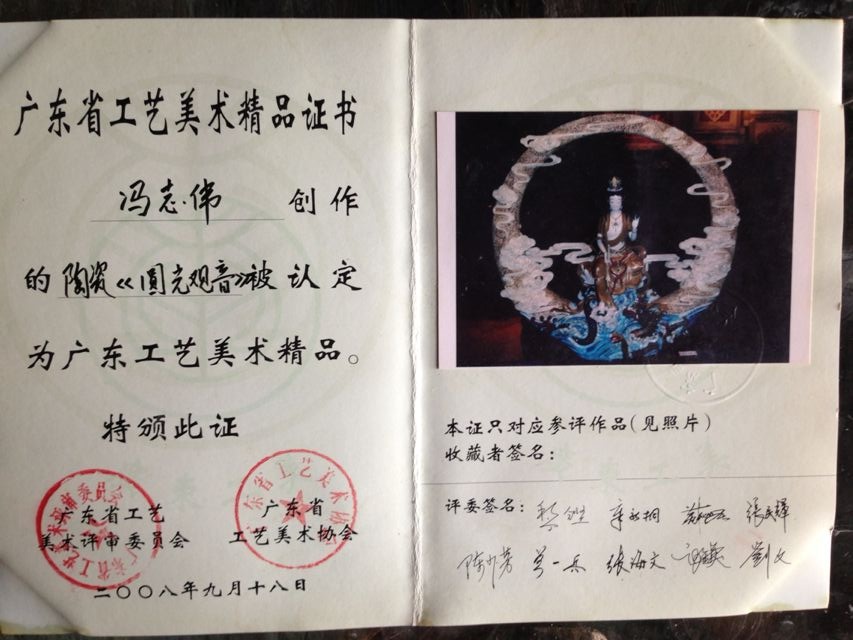 广东省工艺美术精品证书
冯志伟 创作
的陶瓷《圆光观音》被认定
为广东工艺美术精品。
特颁此证
广东省工艺
美术评审委员会
广东省
工艺美术协会
二〇〇八年九月十八日
本证只对应参评作品(见照片)
收藏者签名:
评委签名:
张海文